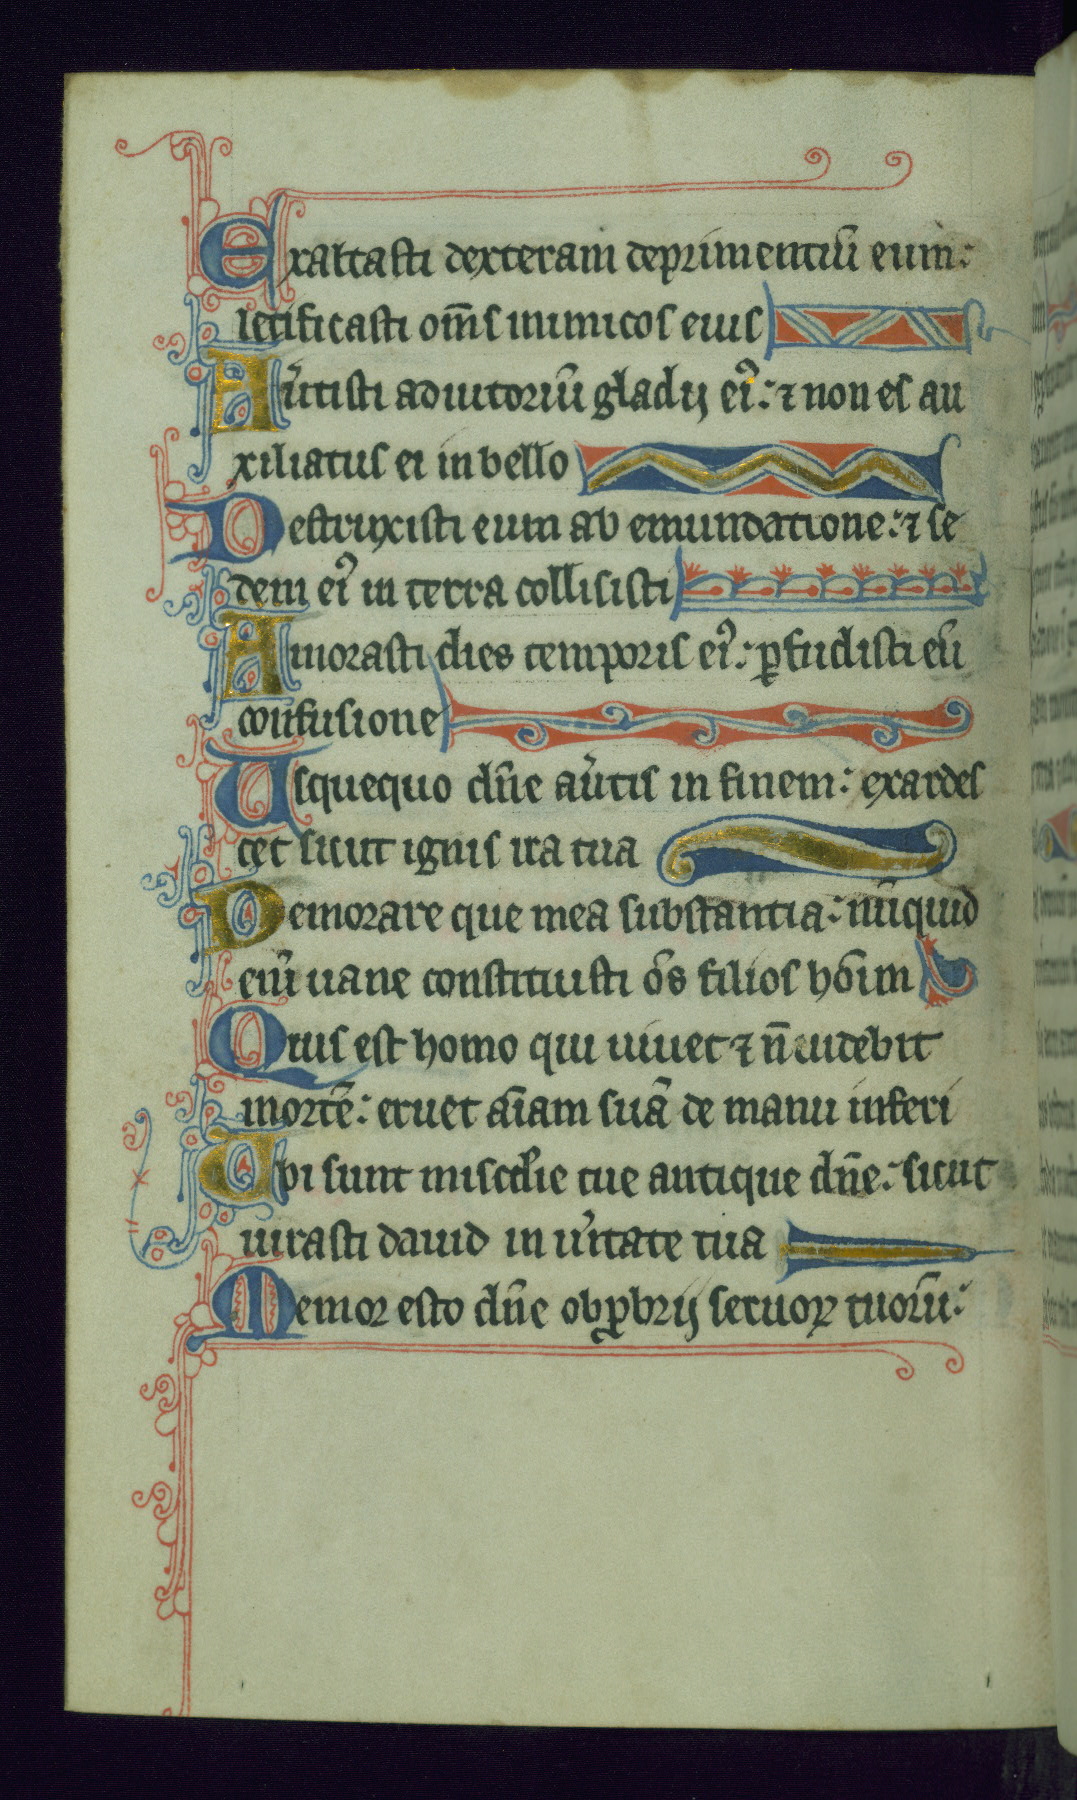 Exaltasti dexteram deprimentiū eum:
letificasti om̄s inimicos eius
Au᷑tisti adiutoriū gladij eiꝰ: ⁊ non es au
xiliatus ei in bello
Destruxisti eum ab emundatione: ⁊ se
dem eiꝰ in terra collisisti
Minorasti dies temporis eiꝰ: ꝑfudisti eū
confusione
Usquequo dn̄e au᷑tis in finem: exardes
cet sicut ignis ira tua
Memorare que mea substantia: nūquid
eni᷑ uane constituisti o᷑s filios ho᷑im
Quis est homo qui uiuet ⁊ n̄ uidebit
mortē: eruet ai᷑am suā de manu inferi
Ubi sunt mis᷑cdie tue antique dn̄e: sicut
iurasti dauid in u᷑itate tua
Memor esto dn̄e obꝓbrij seruoꝝ tuorū: